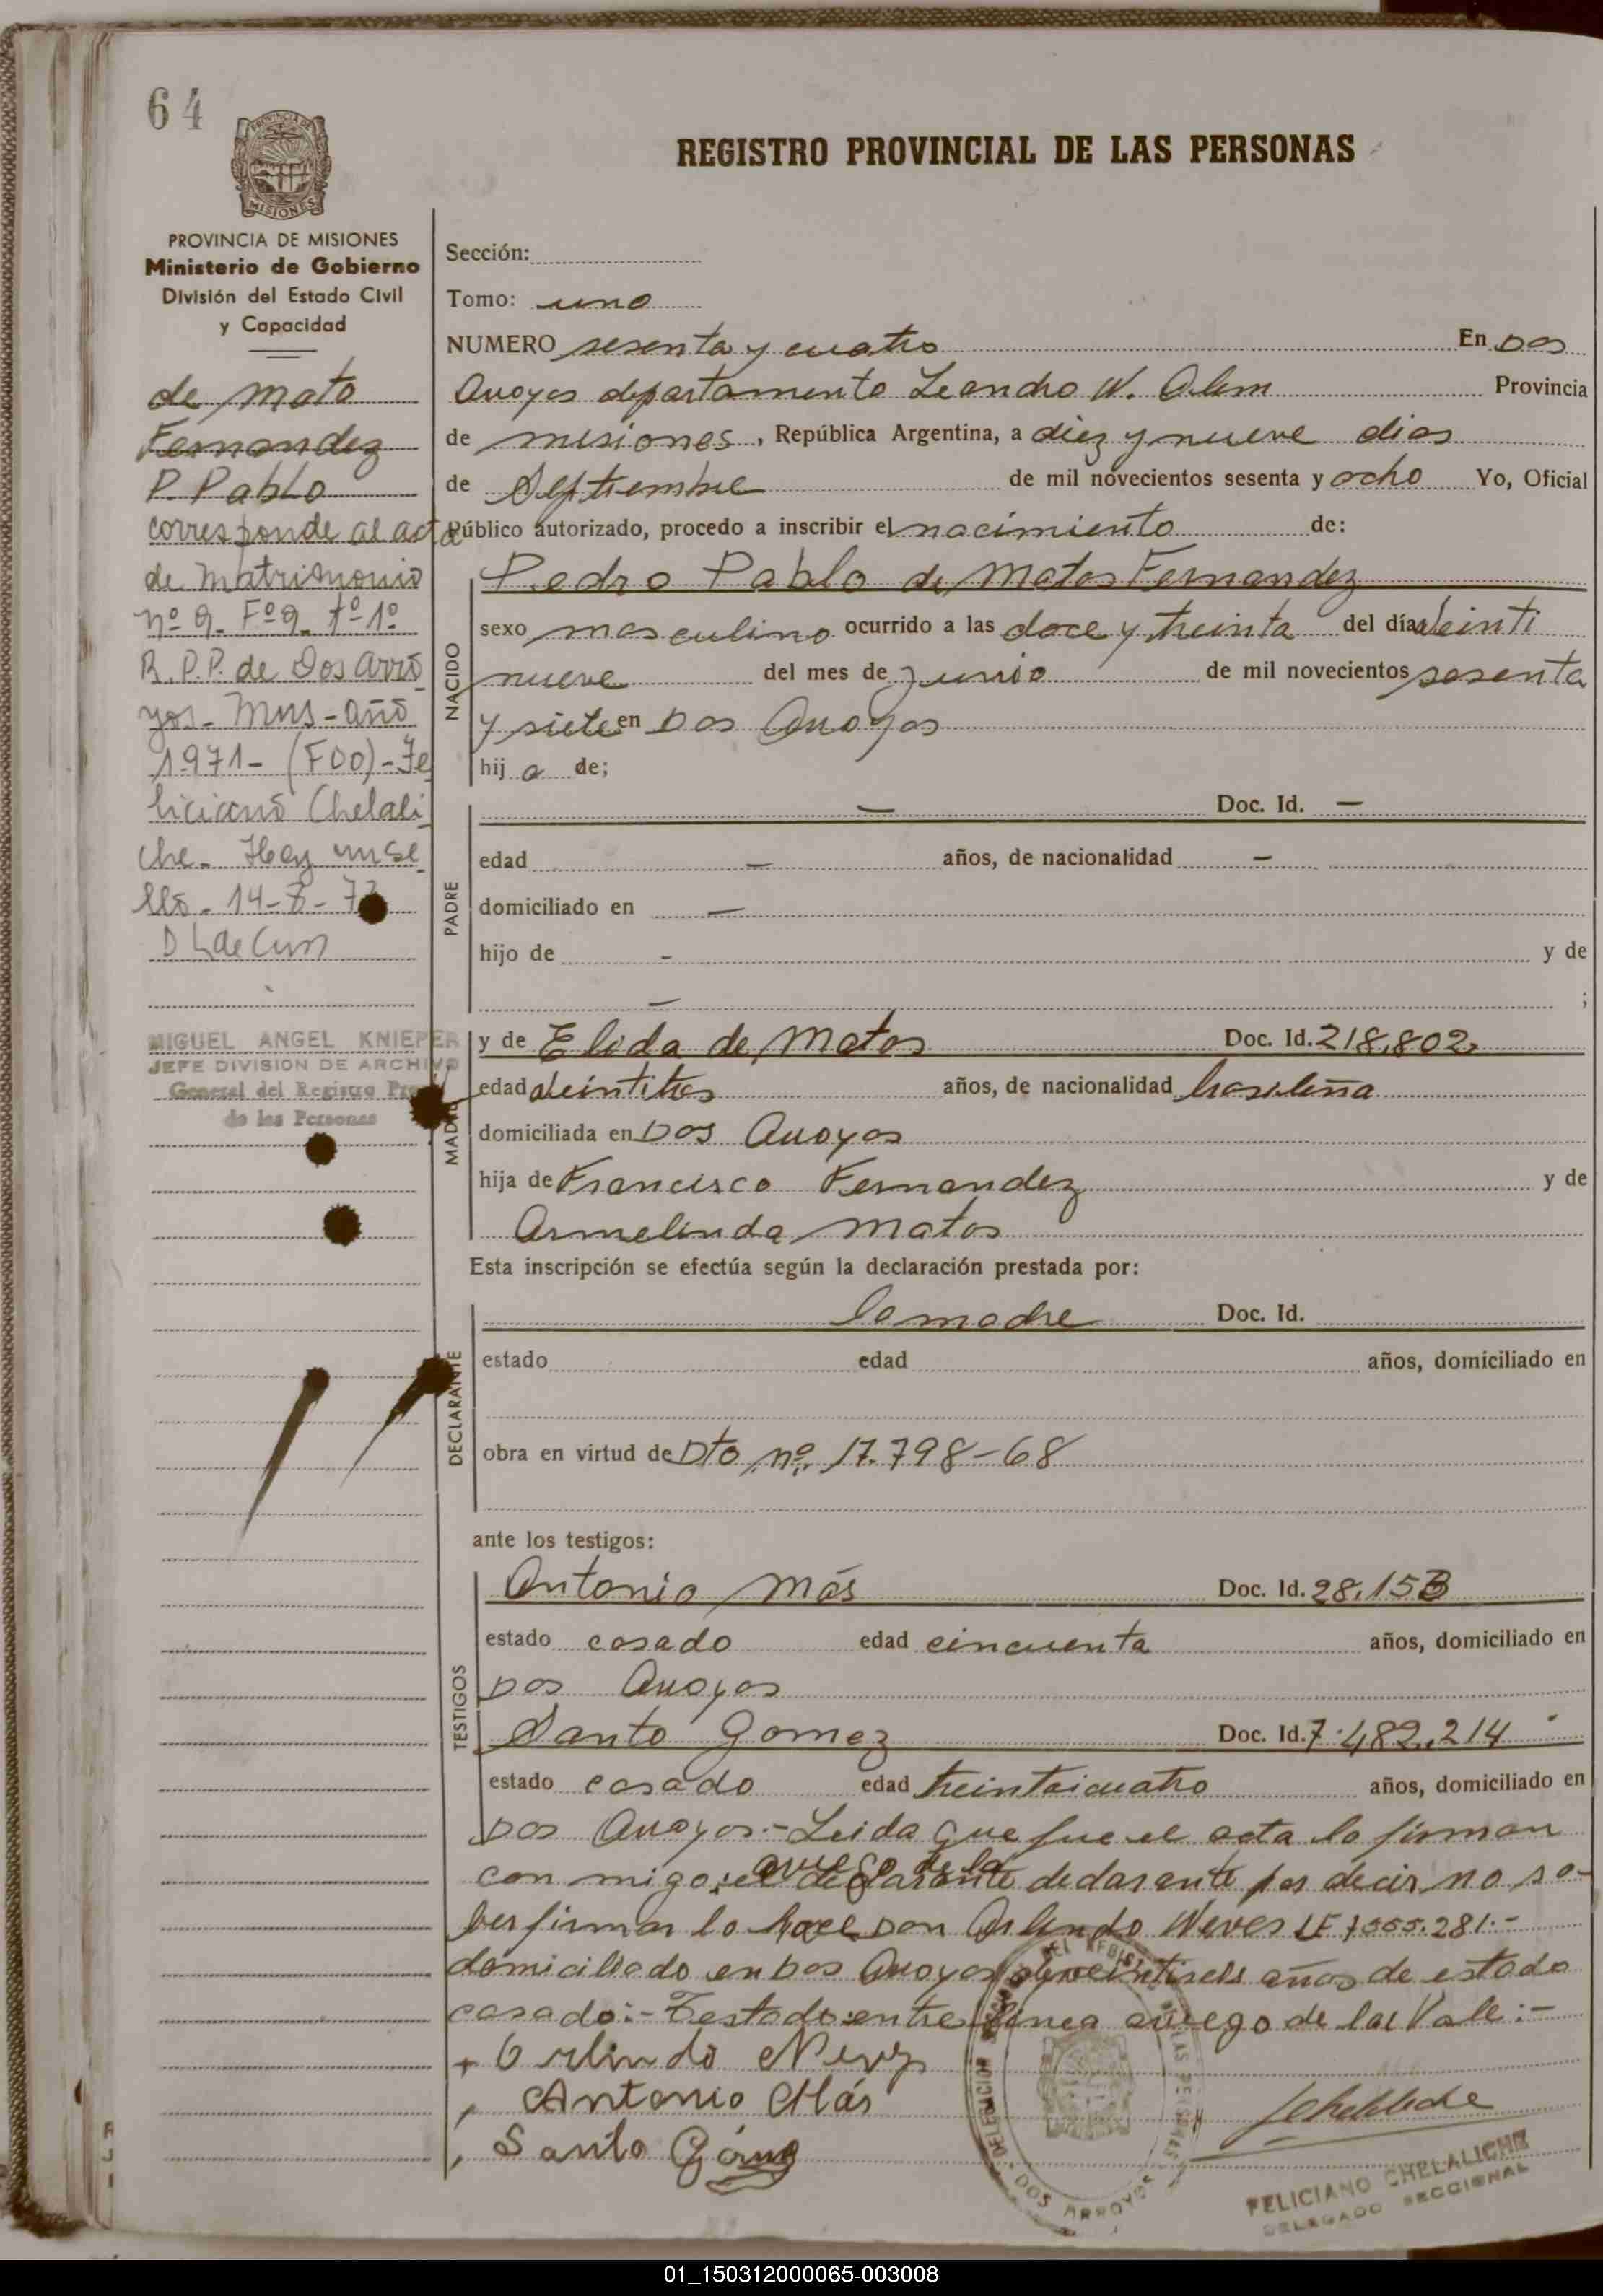 64
PROVINCIA DE
MISIONES
REGISTRO PROVINCIAL DE LAS PERSONAS
PROVINCIA DE MISIONES
Ministerio de Gobierno
División del Estado Civil
y Capacidad
de Mato
Fernandez
P. Pablo
corresponde al acta
de Matrimonio
nº 9. Fº 9. tº 1º
R.P.P. de Dos Arro
yos - Mns - año
1971 - (FDO) - Fe
liciano Chelali
che. Hay un se
llo.
MIGUEL ANGEL KNIEPER
JEFE DIVISION DE ARCHIVO
General del Registro Prov
de las Personas
Sección:
Tomo: uno
NUMERO sesenta y cuatro En Dos
Arroyos departamento Leandro N. Alem Provincia
de misiones, República Argentina, a diez y nueve dias
de Septiembre de mil novecientos sesenta y ocho Yo, Oficial
Público autorizado, procedo a inscribir el nacimiento de:
NACIDO
Pedro Pablo de Matos Fernandez
sexo masculino ocurrido a las doce y treinta del día veinti
nueve del mes de Junio de mil novecientos sesenta
y siete en Dos Arroyos
hij o de;
PADRE
— Doc. Id. —
edad — años, de nacionalidad —
domiciliado en —
hijo de - y de
— ;
MADRE
y de Elida de Matos Doc. Id. 218,802,
edad veintitres años, de nacionalidad brasileña
domiciliada en Dos Arroyos
hija de Francisco Fernandez y de
Armelinda Matos
Esta inscripción se efectúa según la declaración prestada por:
DECLARANTE
la madre Doc. Id.
estado edad años, domiciliado en
obra en virtud de Dto nº. 17.798-68
ante los testigos:
TESTIGOS
Antonio Más Doc. Id. 28.153
estado casado edad cincuenta años, domiciliado en
Dos Arroyos
Santo Gomez Doc. Id. 7.482.214
estado casado edad treintaicuatro años, domiciliado en
Dos Arroyos.- Leida que fue el acta lo firman
aruego de la
con migo; el declarante declarante por decir no sa-
ber firmar lo hace Don Orlindo Neves LE 7555.281.-
domiciliado en Dos Arroyos de veintiseis años de estado
casado:- Testado: entre linea aruego de la: Vale:-
+ Orlindo Nevez
, Antonio Más
, Santo Gómez
DELEGACION
DEL REGISTRO
DE LAS PERSONAS
DOS ARROYOS
FELICIANO CHELALICHE
DELEGADO SECCIONAL
01_150312000065-003008